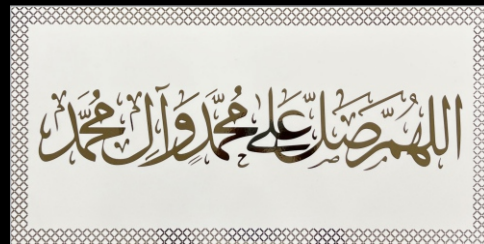 اللهم صَلِّ عَلى مُحمَّدٍ وَآلِ مُحمَّد